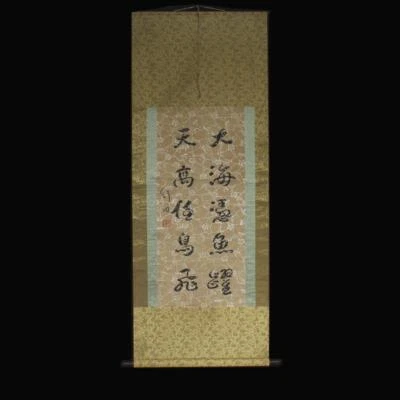 大海憑魚躍
天高任鳥飛